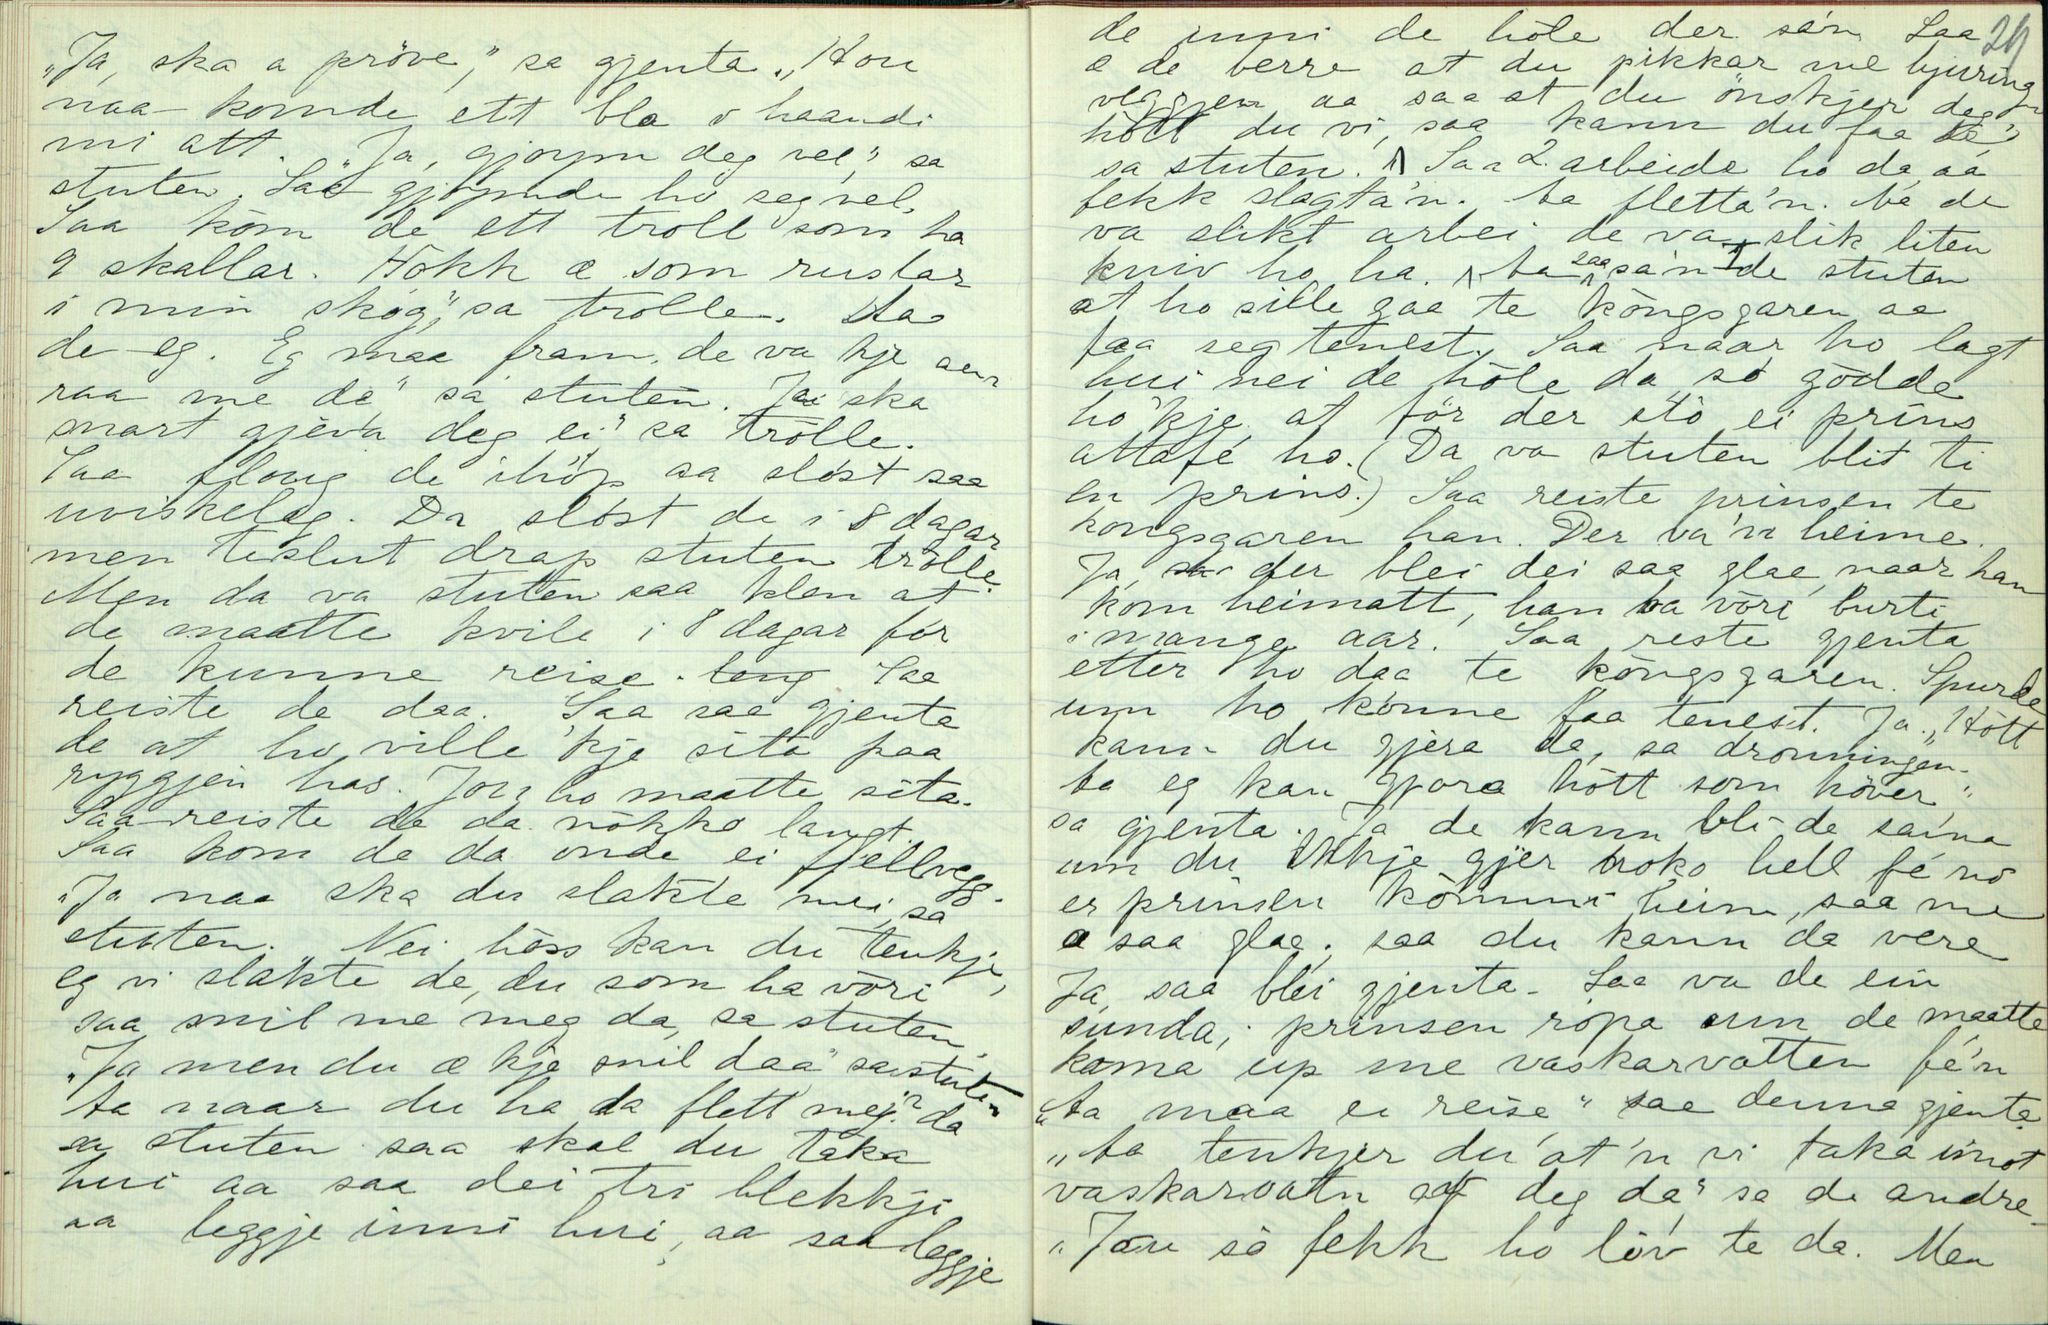 „Ja, ska a pröve," sa gjenta. „Hon
naa komde ett bla i haandi
mi att. „Ja, gjöym deg vel," sa
stuten. Saa gjöymde ho seg vel.
Saa kom de ett troll som ha
9 skallar. Hökk æ som ruslar
i min skog," sa trolle. Aa
de eg. Eg maa fram, de va kje aen
raa me de" sa stuten. Ja ska
snart gjeva deg ei" sa trolle.
Saa floug de ihöp aa slöst saa
uviskeleg. Da slöst de i 8 dagar
men teslut drap stuten trolle.
Men da va stuten saa klen at
de maatte kvile i 8 dagar för
de kunne reise. Saa
reiste de daa. Saa saa gjenta
de at ho ville 'kje sita paa
ryggjen has. Jou ho maatte sita.
Saa reiste de da nökko langt.
Saa kom de da onde ei fjellvegg.
„Ja naa ska du slakte mei, sa
stuten. Nei höss kan du tenkje,
eg vi slakte de, du som ha vöri
saa snil me meg da, sa stuten.
„Ja men du æ kje snil daa" sa stuten
Aa naar du ha da flett meg da
sa stuten saa skal du taka
hui aa saa dei tri blekkji
aa leggje inni hui, aa saa leggje
29
de inni de höle der sá'n Saa
æ de berre at du pikkar me hjuringn
veggjen aa saa at du önskjer deg
hött du vi, saa kann du faa de"
sa stuten. Saa 2 arbeide ho da, aa
fekk slagta'n. Aa fletta'n. Aa de
va slikt arbei de va slik liten
kniv ho ha. Aa saa sa'n de stuten
at ho sille gaa te kongsgaren aa
faa seg tenest. Saa naar ho lagt
hui nei de höle da so gödde
ho 'kje at för der sto ei prins
attafé ho. (Da va stuten blit ti
en prins.) Saa reiste prinsen te
kongsgaren han. Der va'n heime.
Ja, der blei dei saa glae, naar han
kom heimatt, han ha vöri burte
i mange aar. Saa reste gjenta
etter ho daa te kongsgaren. Spurde
um ho konne faa tenest. Ja. „Hött
kann du gjera da, sa dronningen.
Aa eg kan gjora hött som höver"
sa gjenta. Ja de kann bli de sama
um du ikkje gjer noko hell fé nö
er prinsen kömmi heim, saa me
æ saa glae, saa du kann da vera
Ja, saa blei gjenta. Saa va de ein
sunda, prinsen ropa um de maatte
koma up me vaskarvatten fé'n
„Aa maa ei reise" sae denna gjenta
„Aa tenkjer du at'n vi taka imot
vaskarvatn af deg da" sa de andre.
„Jou so fekk ho löv te da. Men